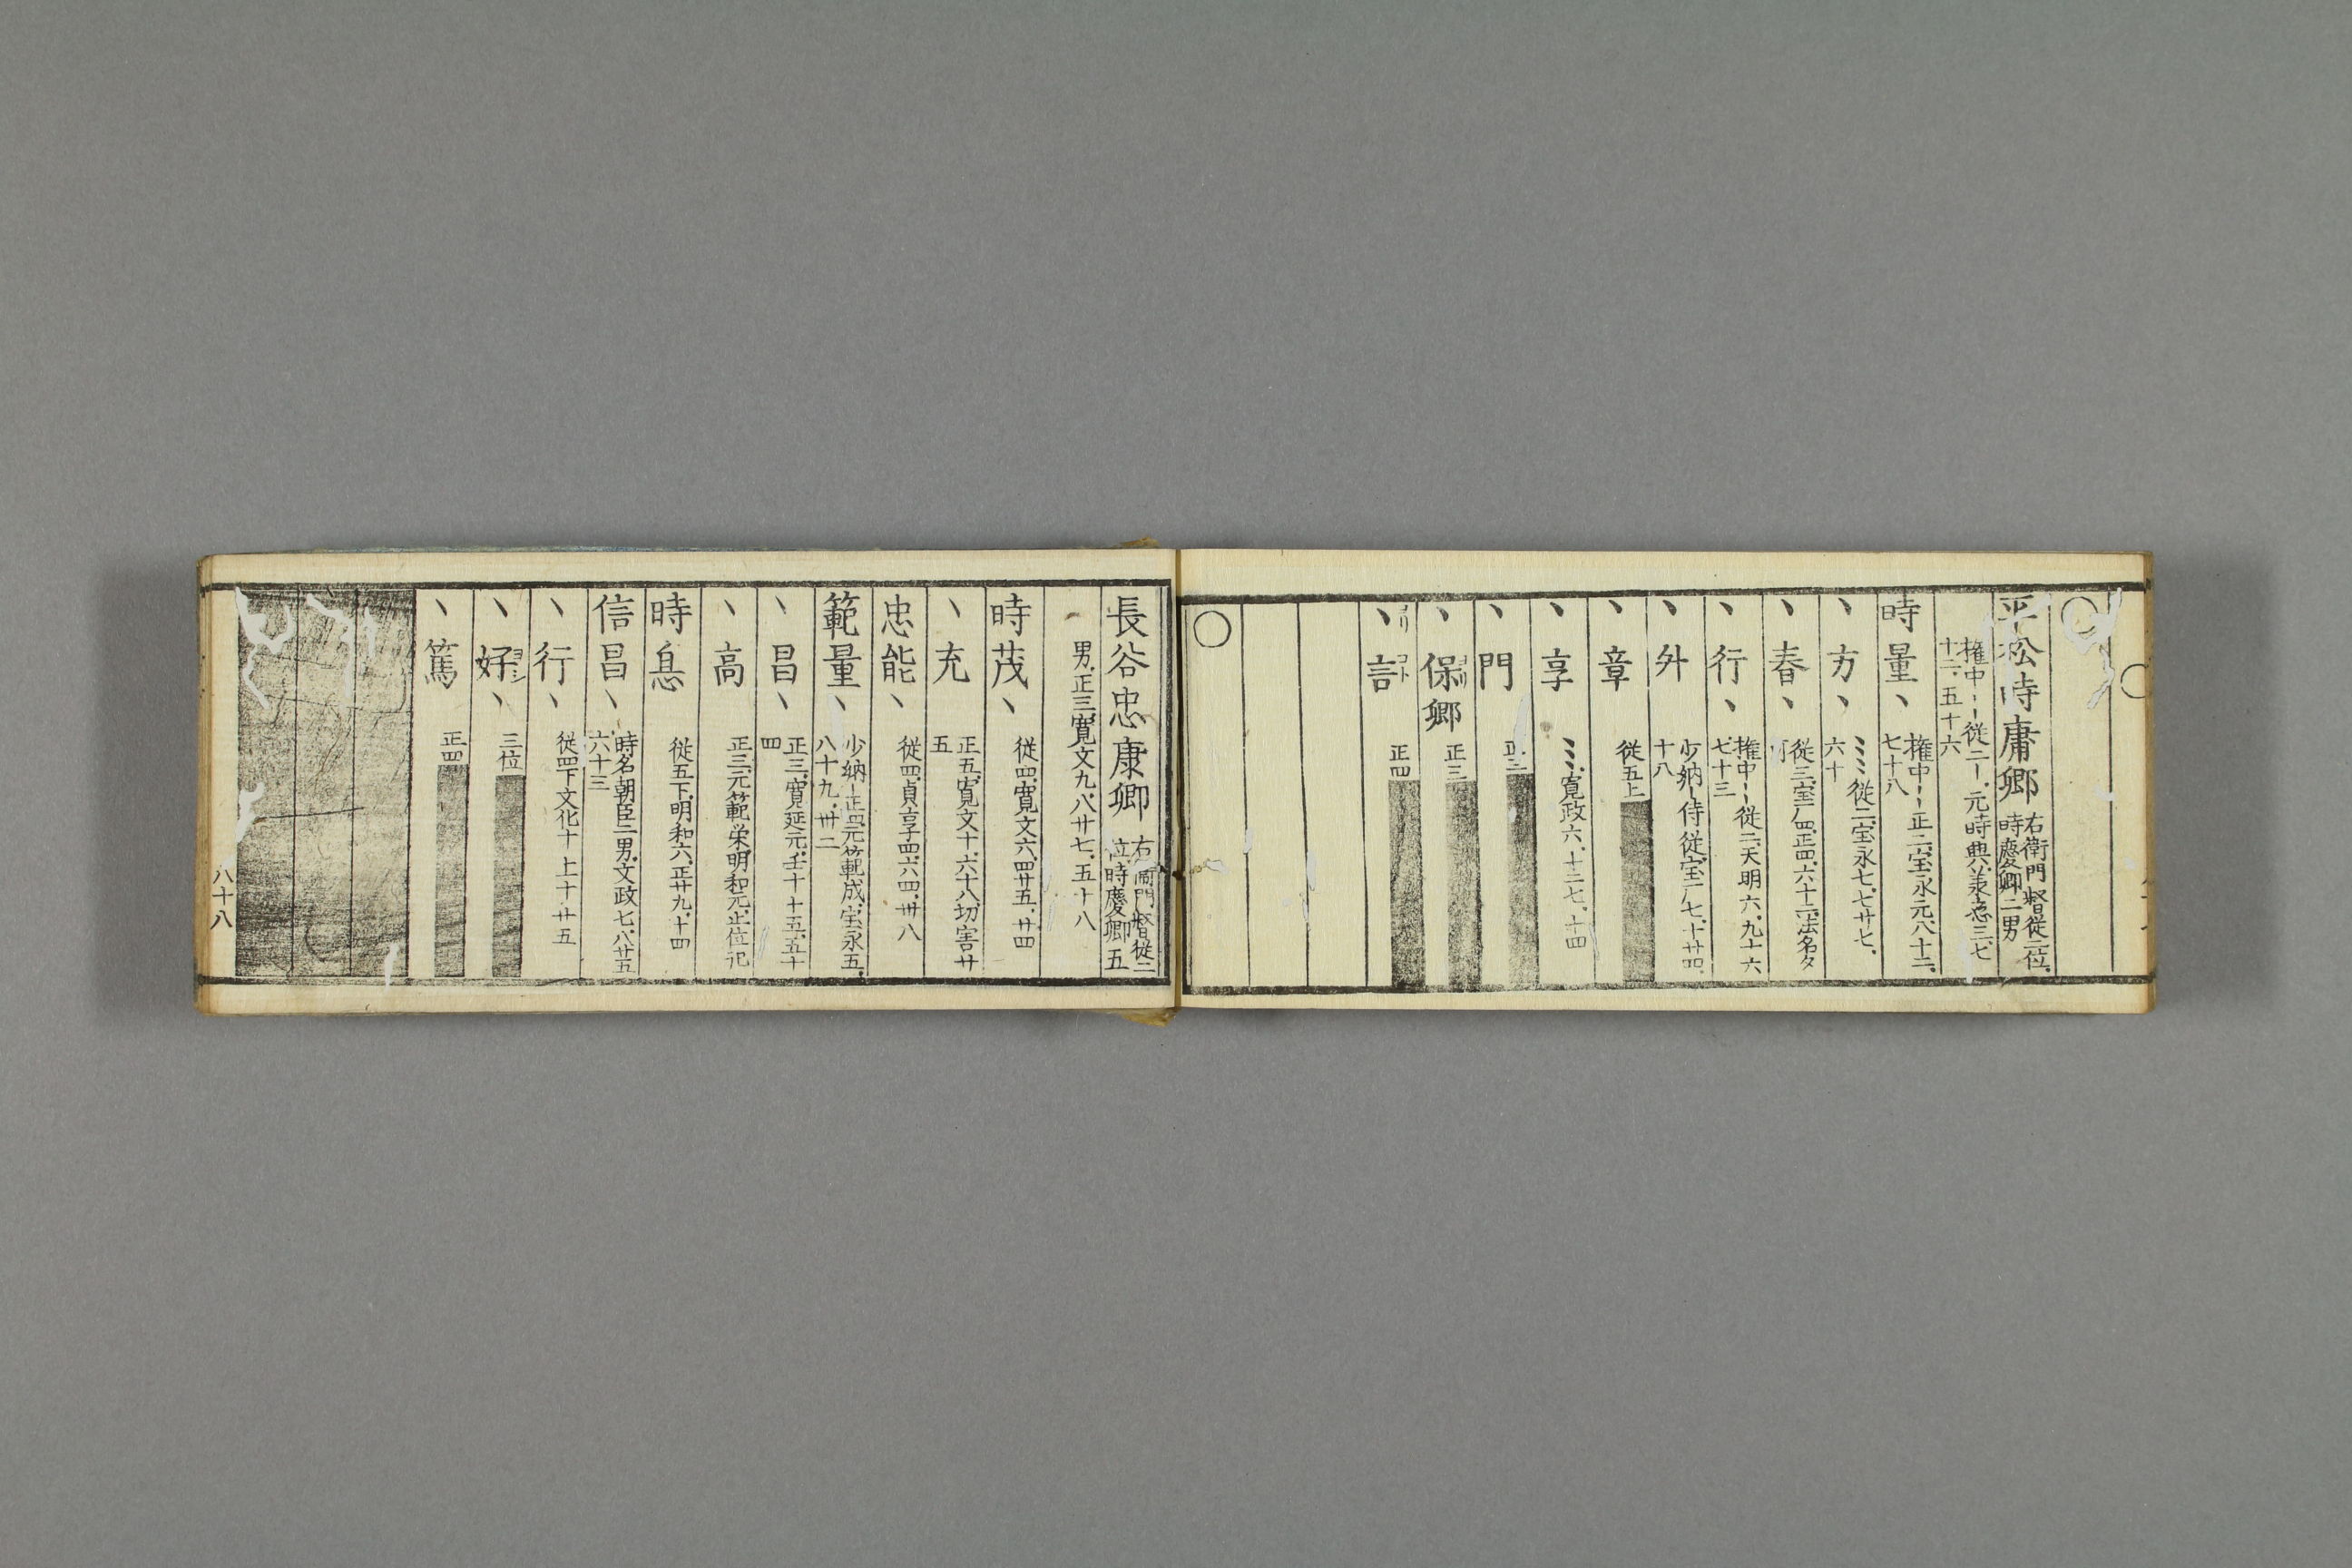 平松時庸卿 右衛門督従二位、時慶卿二男
権中〡〡従二〡、元時興、承応三、七十二、五十六
時量、 権中〡〡正二、宝永元、八十二、七十八
、方、 ミミ従二、宝永七、七廿七、六十
、春、 従三、宝厂四、正四、六十二、法名夕可
、行、 権中〡〡従二、天明六、九十六、七十三
、外 少納〡侍従、宝厂七、十廿四、十八
、章 従五上
、享 ミミ、寛政六、十二七、十四
、門 正三
、保卿 正三
、言 正四
長谷忠康卿 右衛門督従二位時慶卿五
男、正三、寛文九、八廿七、五十八
時茂、 従四、寛文六、四廿五、廿四
、充 正五、寛文十、六十八、切害廿五
忠能、 従四、貞享四、六四、卅八
範量、 少納〡正四、元範成、宝永五、八十九、卅二
、昌、 正三、寛延元、壬十十五、五十四
、高 正三、元範栄、明和元、止位記
時息 従五下、明和六、正廿九、十四
信昌、 時名朝臣二男、文政七、八廿五六十三
、行、 従四下文化十一上十廿五
、好、 三位
、篤 正四
八十八